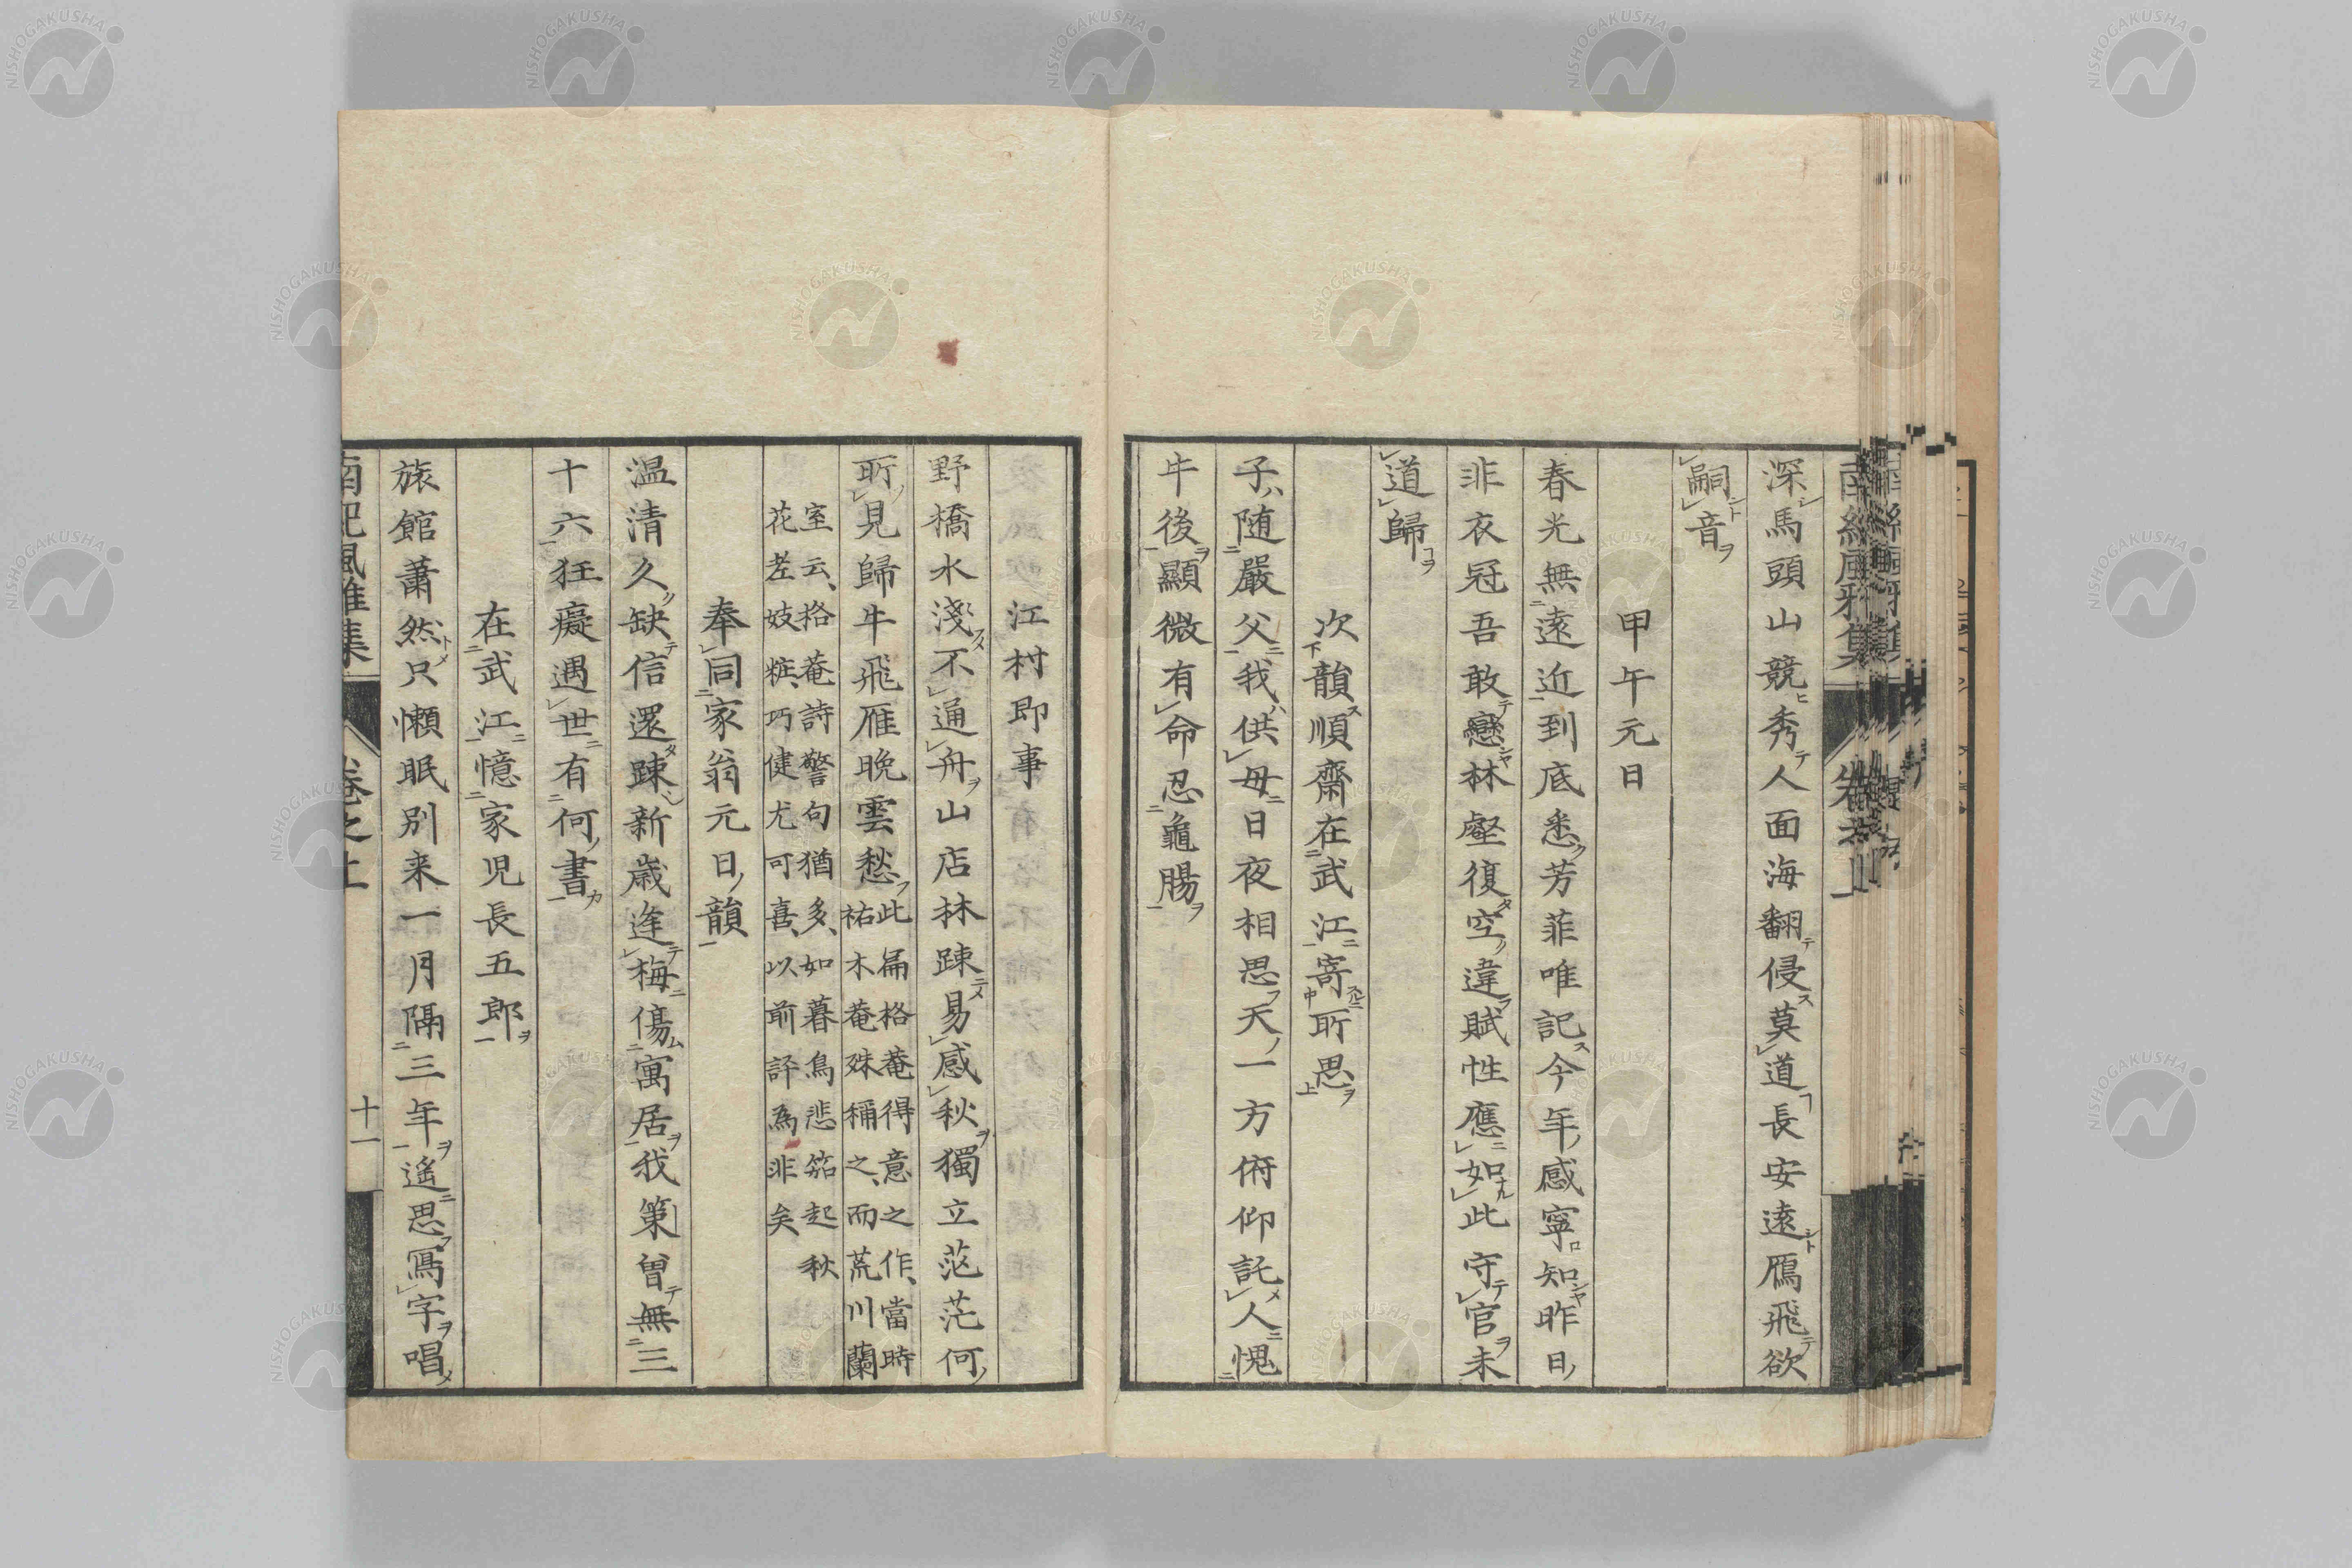 深馬頭山競秀人面海翻侵莫道長安遠鴈飛欲
嗣音
甲午元日
春光無遠近到底悉芳菲唯記今年感寧知昨日
非衣冠吾敢戀林壑復空違賦性應如此守官未
道歸
次韻順齋在武江寄所思
子随嚴父我供母日夜相思天一方俯仰託人愧
牛後顯微有命忍龜腸
江村即事
野橋水淺不通舟山店林踈易感秋獨立茫茫何
所見歸牛飛雁晩雲愁
此篇格菴得意之作、當時
祐木菴殊稱之、而荒川蘭
室云、格菴詩警句猶多、如暮鳥悲笳起秋
花老妓粧、巧健尤可喜、以前評為非矣
奉同家翁元日韻
温清久缺信還踈新歳逢梅傷寓居我策曽無三
十六狂癡遇世有何書
在武江憶家児長五郎
旅館蕭然只懶眠別来一月隔三年遙思寫字唱
南紀風雅集 卷之上 十一
NISHOGAKUSHA